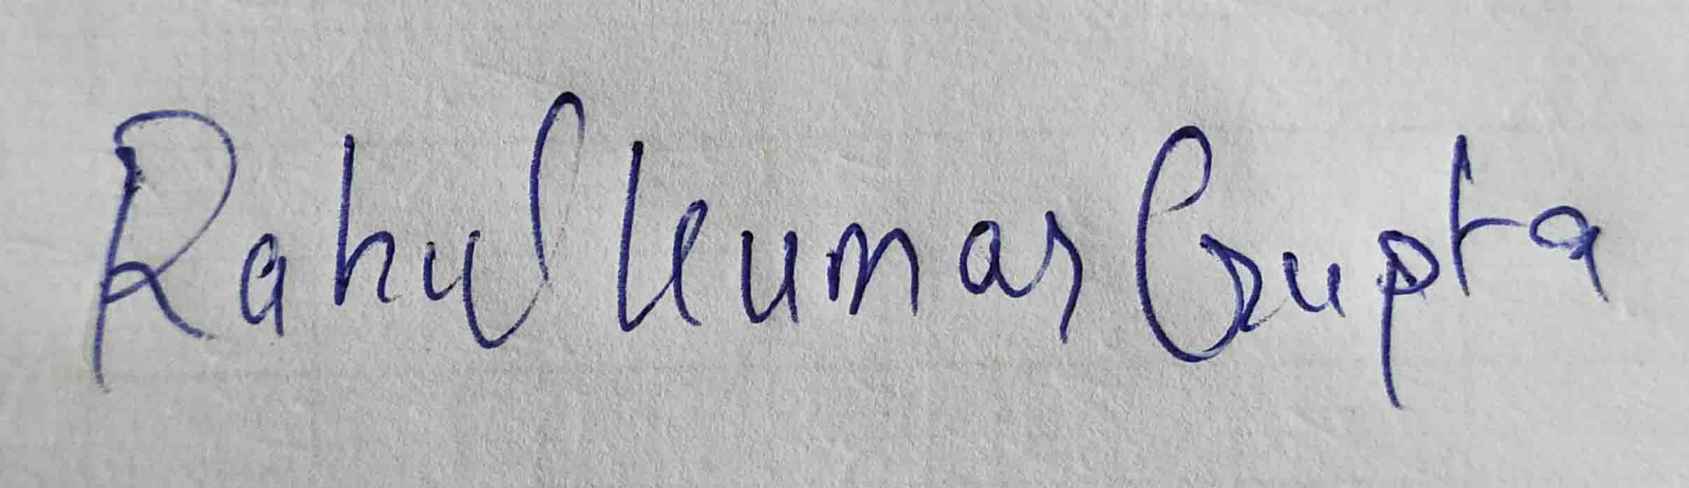 Rahul Kumar Gupta